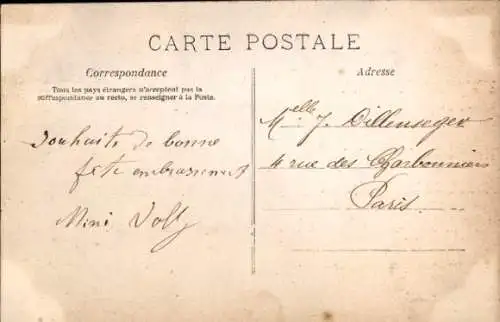 CARTE POSTALE
Correspondance
Tous les pays étrangers n'acceptent pas la
correspondance au recto, se renseigner à la Poste.
Souhaits de bonne
fête embrassements
Mimi
Adresse
Melle J. Dillenseger
4 rue des Charbonniers
Paris